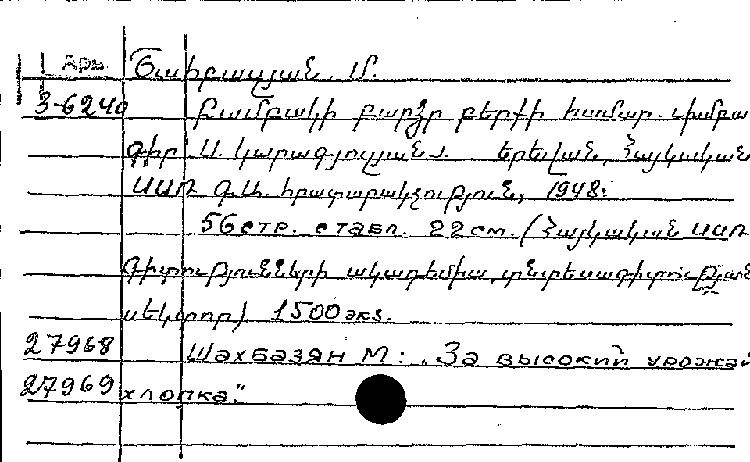 Арм. Շահբազյան Մ.
3-6240 Բամբակի բարձր բերքի համար. Խմբա
գիր՝ Ս. Կարագյուլյան. Երևան, Հայկական
ՍՍՌ Գ.Ա. հրատարակչություն, 1948.
56 стр. с табл. 22 см. (Հայկական ՍՍՌ
գիտությունների ակադեմիա, տնտեսագիտության
սեկտոր) 1500 экз.
27968 Шахбазян М: „За высокий урожай
27969 хлопка."